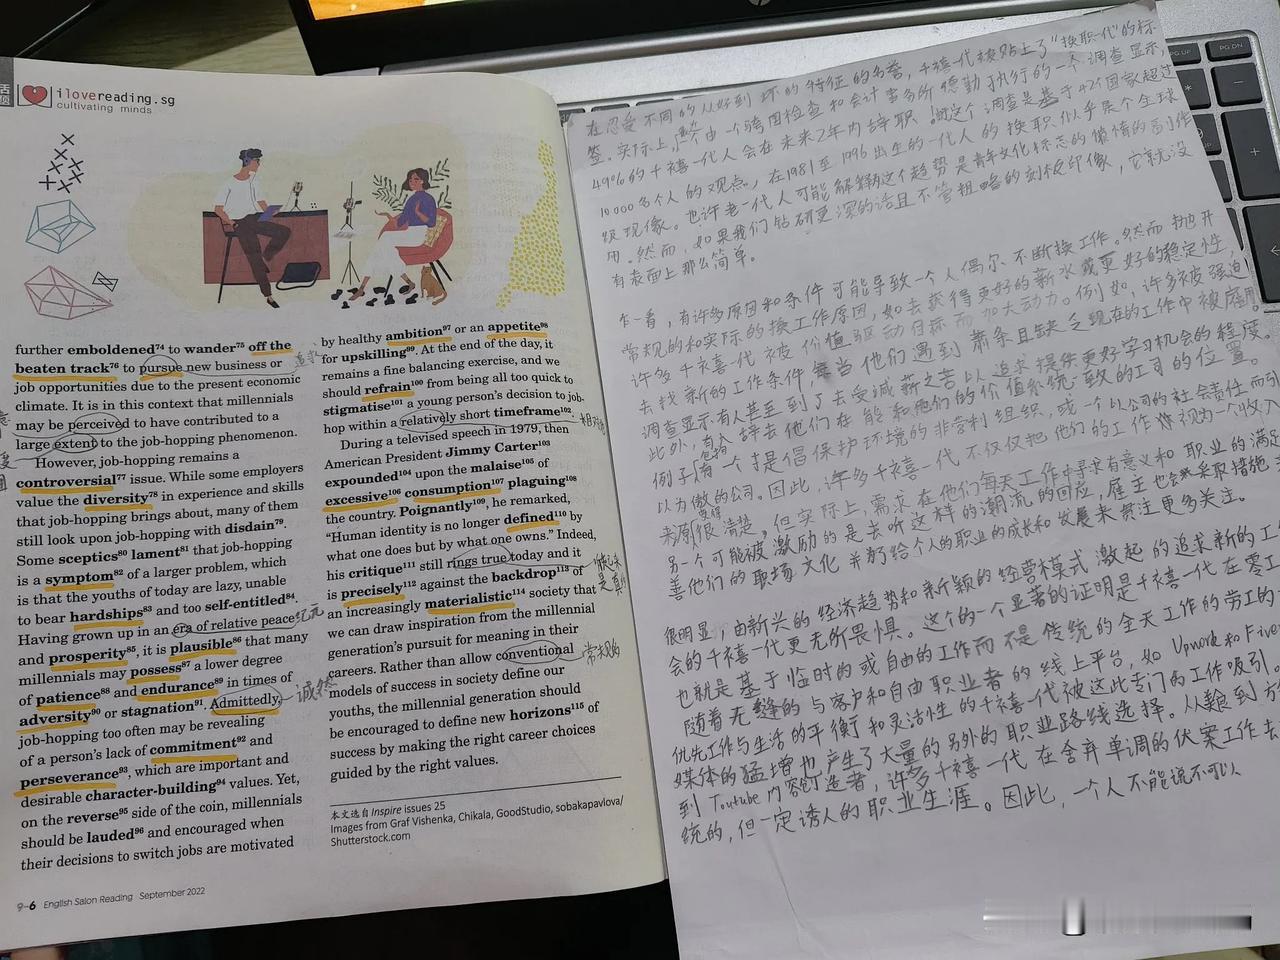 ilovereading.sg
cultivating minds
further emboldened74 to wander75 off the
beaten track76 to pursue new business or
job opportunities due to the present economic
climate. It is in this context that millennials
may be perceived to have contributed to a
large extent to the job-hopping phenomenon.
However, job-hopping remains a
controversial77 issue. While some employers
value the diversity78 in experience and skills
that job-hopping brings about, many of them
still look upon job-hopping with disdain79.
Some sceptics80 lament81 that job-hopping
is a symptom82 of a larger problem, which
is that the youths of today are lazy, unable
to bear hardships83 and too self-entitled84.
Having grown up in an era of relative peace
纪元
and prosperity85, it is plausible86 that many
millennials may possess87 a lower degree
of patience88 and endurance89 in times of
adversity90 or stagnation91. Admittedly,
诚然
job-hopping too often may be revealing
of a person's lack of commitment92 and
perseverance93, which are important and
desirable character-building94 values. Yet,
on the reverse95 side of the coin, millennials
should be lauded96 and encouraged when
their decisions to switch jobs are motivated
by healthy ambition97 or an appetite98
for upskilling99. At the end of the day, it
remains a fine balancing exercise, and we
should refrain100 from being all too quick to
stigmatise101 a young person's decision to job-
hop within a relatively short timeframe102.
相对地
During a televised speech in 1979, then
American President Jimmy Carter103
expounded104 upon the malaise105 of
excessive106 consumption107 plaguing108
the country. Poignantly109, he remarked,
"Human identity is no longer defined110 by
what one does but by what one owns." Indeed,
his critique111 still rings true today and it
is precisely112 against the backdrop113 of
an increasingly materialistic114 society that
we can draw inspiration from the millennial
generation's pursuit for meaning in their
careers. Rather than allow conventional
常规的
models of success in society define our
youths, the millennial generation should
be encouraged to define new horizons115 of
success by making the right career choices
guided by the right values.
本文选自 Inspire issues 25
Images from Graf Vishenka, Chikala, GoodStudio, sobakapavlova/
Shutterstock.com
9-6 English Salon Reading September 2022
在忍受不同的从好到坏的特征的名誉,千禧一代被贴上了"换职一代"的标
签。实际上,由一个跨国检查和会计事务所德勤执行的一个调查显示,
49%的千禧一代人会在未来2年内辞职。这个调查是基于42个国家超过
10000多个人的观点。在1981至1996出生的一代人的换职似乎是个全球
级现像。也许老一代人可能解释这个趋势是青年文化标志的懒惰的副作
用。然而,如果我们钻研更深的话且不管粗略的刻板印像,它就没
有表面上那么简单。
乍一看,有许多原因和条件可能导致一个人偶尔、不断换工作。然而抛开
常规的和实际的换工作原因,如去获得更好的薪水或更好的稳定性,
许多千禧一代被价值驱动目标而加大动力。例如,许多被强迫
去找新的工作条件每当他们遇到萧条且缺乏现在的工作中被雇用。
调查显示有人甚至到了去受减薪之苦以追求提供更好学习机会的程度。
此外,有人辞去他们在能和他们的价值系统一致的公司的位置。
例子包有一个提倡保护环境的非营利组织,或一个以公司的社会责任而引
以为傲的公司。因此,许多千禧一代不仅仅把他们的工作视为一个收入
来源,很清楚,但实际上,需求在他们每天工作中寻求有意义和职业的满足
另一个可能被激励的是去听这样的潮流的回应,雇主也会采取措施
善他们的职场文化并扔给个人的职业的成长和发展来赏注更多关注。
很明显,由新兴的经济趋势和新颖的经营模式激起的追求新的工
会的千禧一代更无所畏惧。这个的一个显著的证明是千禧一代在零工
也就是基于临时的或自由的工作而不是传统的全天工作的劳工的
随着无缝的与客户和自由职业者的线上平台,如 Upwork和 Fiver
优先工作与生活的平衡和灵活性的千禧一代被这此专门的工作吸引。
媒体的猛增也产生了大量的另外的职业路线选择。从粮到
到 Youtube 内容创造者,许多千禧一代在舍弃单调的伏案工作去
统的,但一定诱人的职业生涯。因此,一个人不能说不可以
PG UP
PG DN